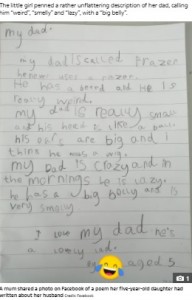 The little girl penned a rather unflattering description of her dad, calling
him "weird", "smelly" and "lazy", with a "big belly".
my dad.
my dad is called Frazer
never uses a razer.
He has a and He is
really weird.
my dad is really small
and his head is like a
his ear's are big and I
think he has a wig.
my Dad is crazy and in
the mornings he is lazy.
he has a big belly and is
very smelly
I love my dad he's
a lovely dad.
aged 5
1
A mum shared a photo on Facebook of a poem her five-year-old daughter had
written about her husband Credit: Facebook